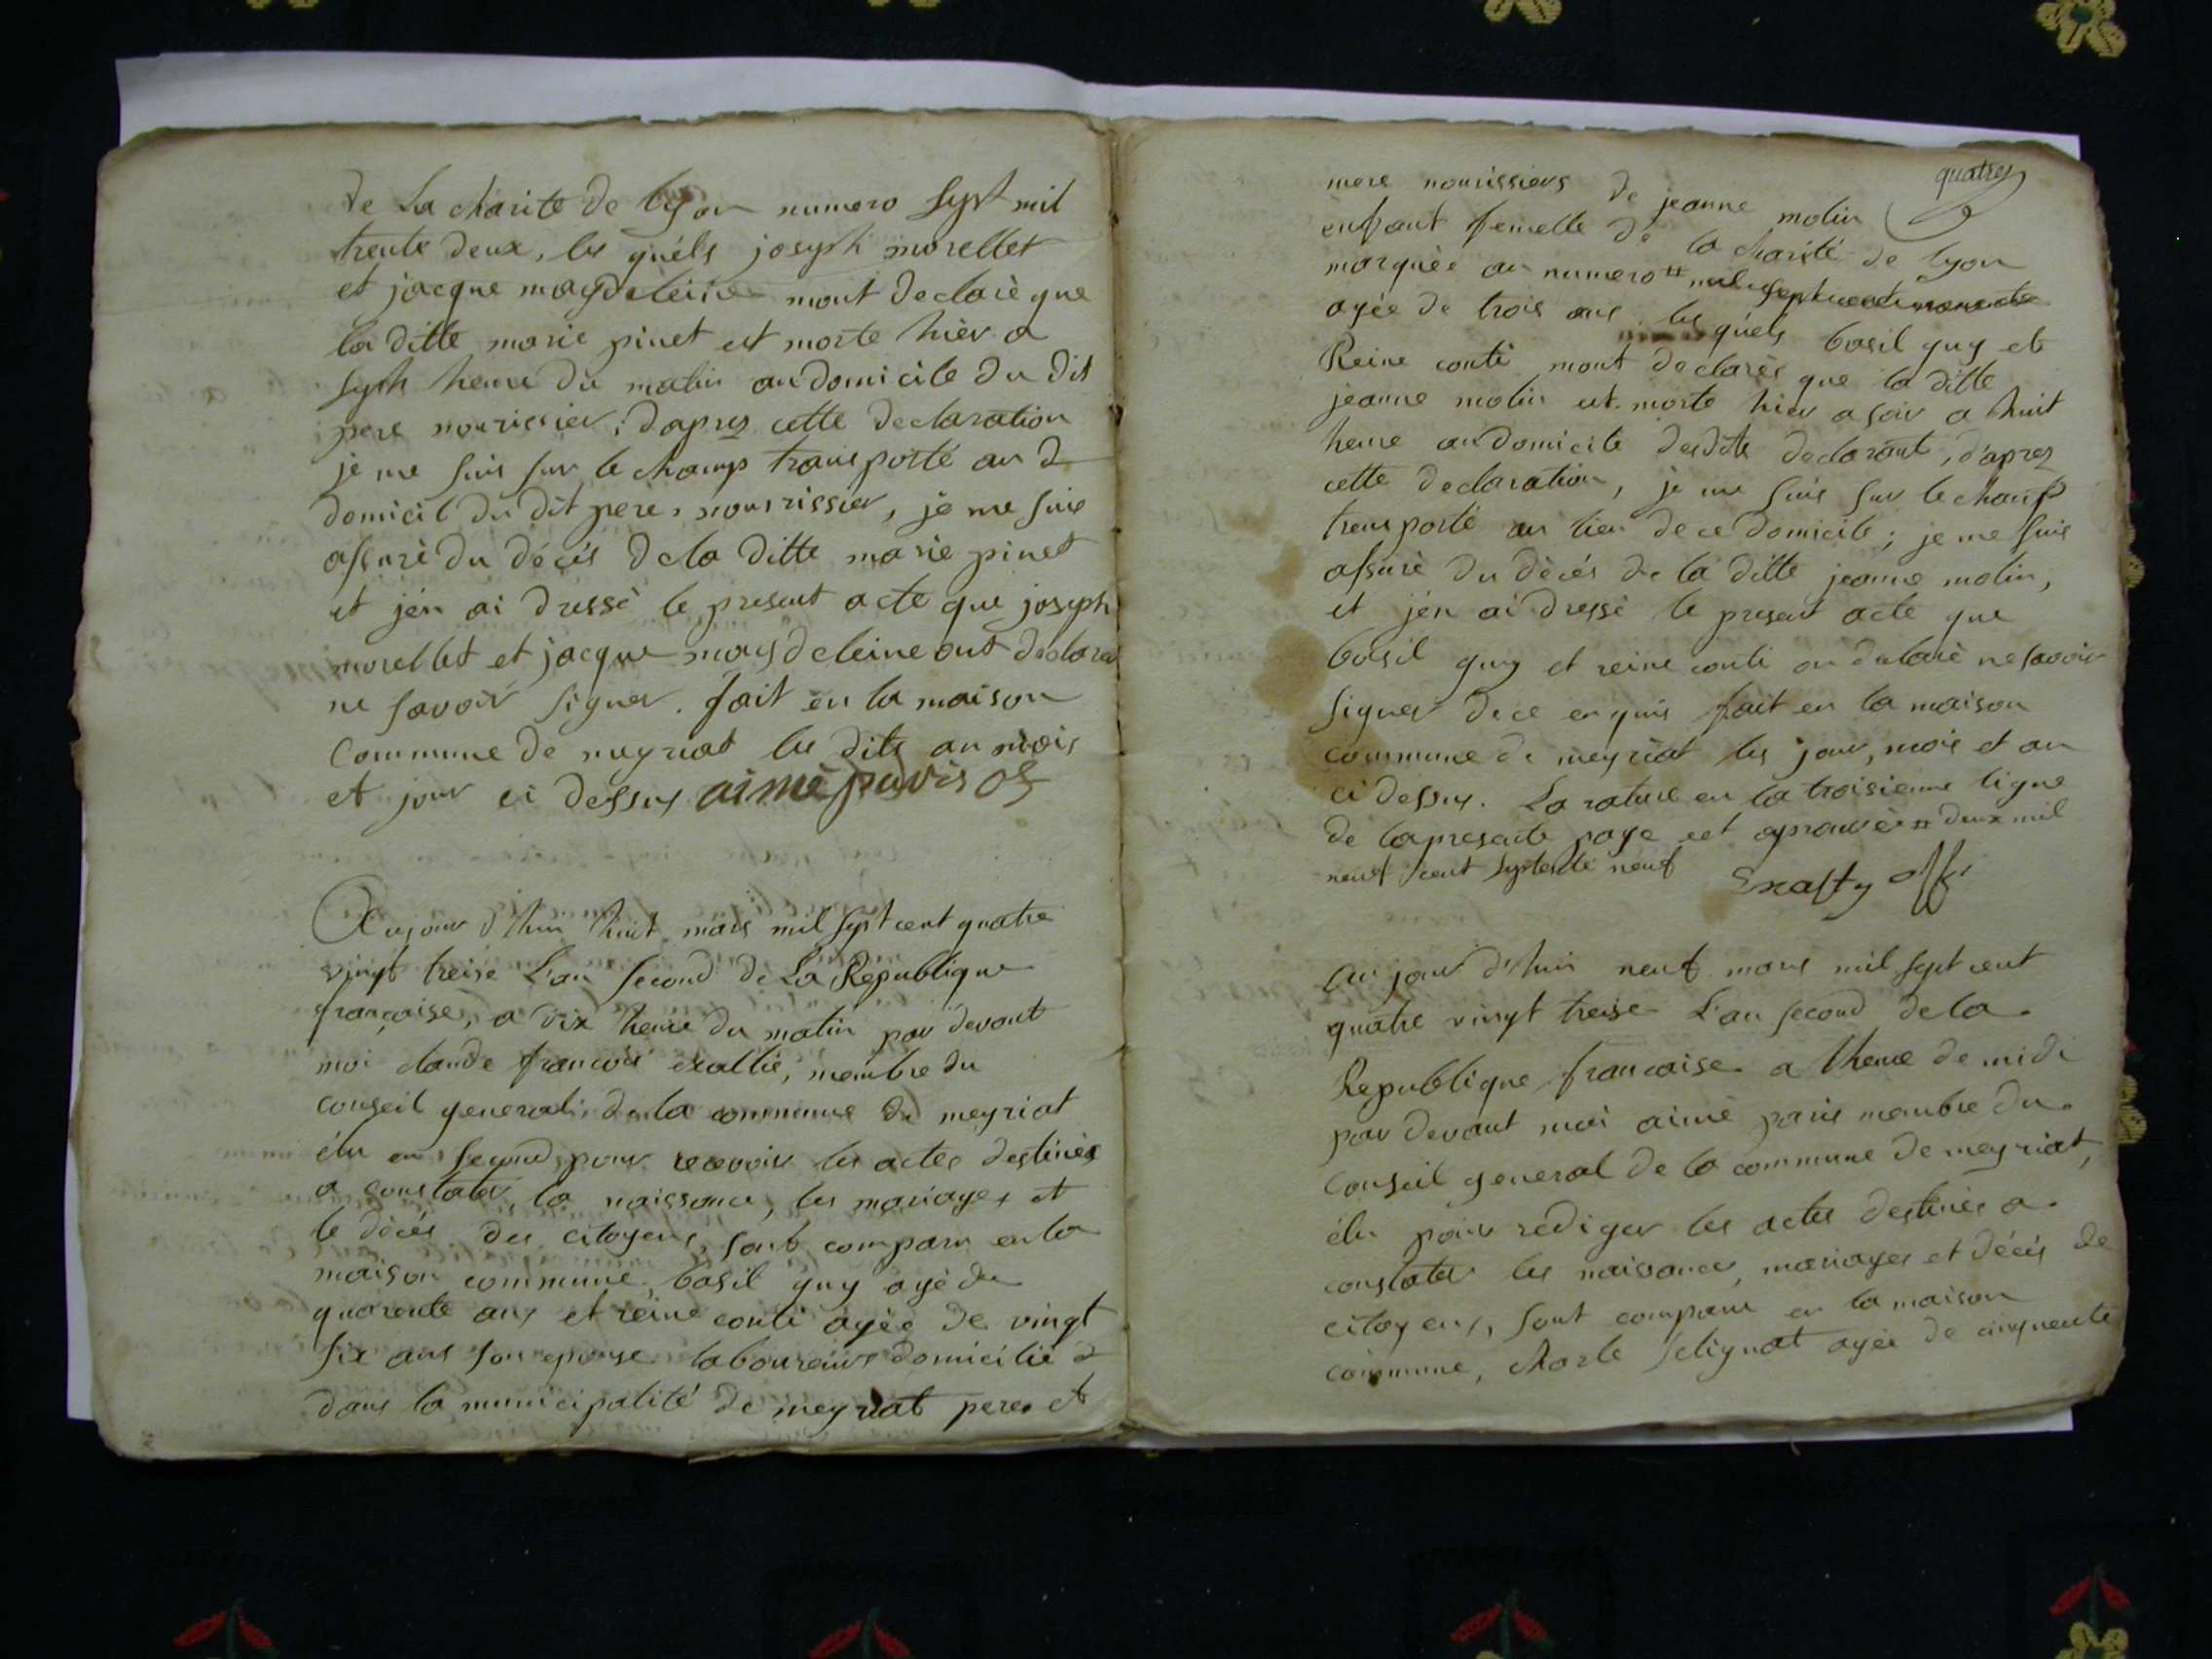 de La charite de lyon numero sept mil
trente deux, les quéls joseph morellet
et jacque magdeleine mont declarè que
la ditte marie pinet est morte hièr a
sept heure du matin au domicile du dit
pere nourissier; daprez cette declaration
je me suis sur le champ transporté au
domicil du dit pere, nourrissier, je me suis
assurè du décés de la ditte marie pinet
et jén ai dressè le present acte que joseph
morellet et jacque magdeleine ont declarer
ne savoir signer. fait en la maison
commune de meyriat les dits an mois
et jour ci dessus aimè paris of
Aujour d'hui huit mars mil sept cent quatre
vingt treise L'an second de La Republique
française, a dix heure du matin par devant
moi claude francois exallié, membre du
conseil general de la commune de meyriat
élu en second pour recevoir les actes destinès
a constater la naissance, les mariages et
le dècés des citoyens, sont comparu en la
maison commune, basil guy agè de
quarente ans et reine conti agèe de vingt
six ans son epouse laboureurs domiciliè
dans la municipalité de meyriat pere et
quatre
mere nourissiers de jeanne molin
enfant femelle de la charité de lyon
marquèe au numero # mil sept cent nonente
agèe de trois ans. les quéls basil guy et
Reine conti mont declarès que la ditte
jeanne molin est morte hier a soir a huit
heure au domicile desdits declarant, d'aprez
cette declaration, je me suis sur le champ
transporté au lieu de ce domicile; je me suis
assurè du dècés de la ditte jeanne molin,
et jén ai dressè le present acte que
basil guy et reine conti on declarè ne savoir
signer de ce enquis fait en la maison
commune de meyriat les jour, mois et an
ci dessus. La rature en la troisieme ligne
de la presente page est aprouvèe # deux mil
neuf cent septente neuf Exalty off
Au jour d'hui neuf mars mil sept cent
quatre vingt treise L'an second de la
Republique francaise a lheure de midi
par devant moi aimè paris membre du
Conseil general de la commune de meyriat,
élu pour rediger les actes destinès a
constater les naissances, mariages et décés de
citoyens, sont comparu en la maison
commune, charle selignat agèe de cinquente